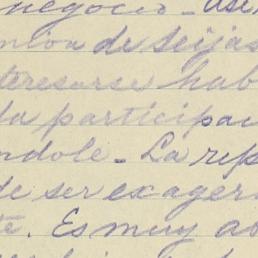 negocio - ase
de Seijas
teresarse hab
da participac
ndole - La resp
de ser exager
te. Es muy ab